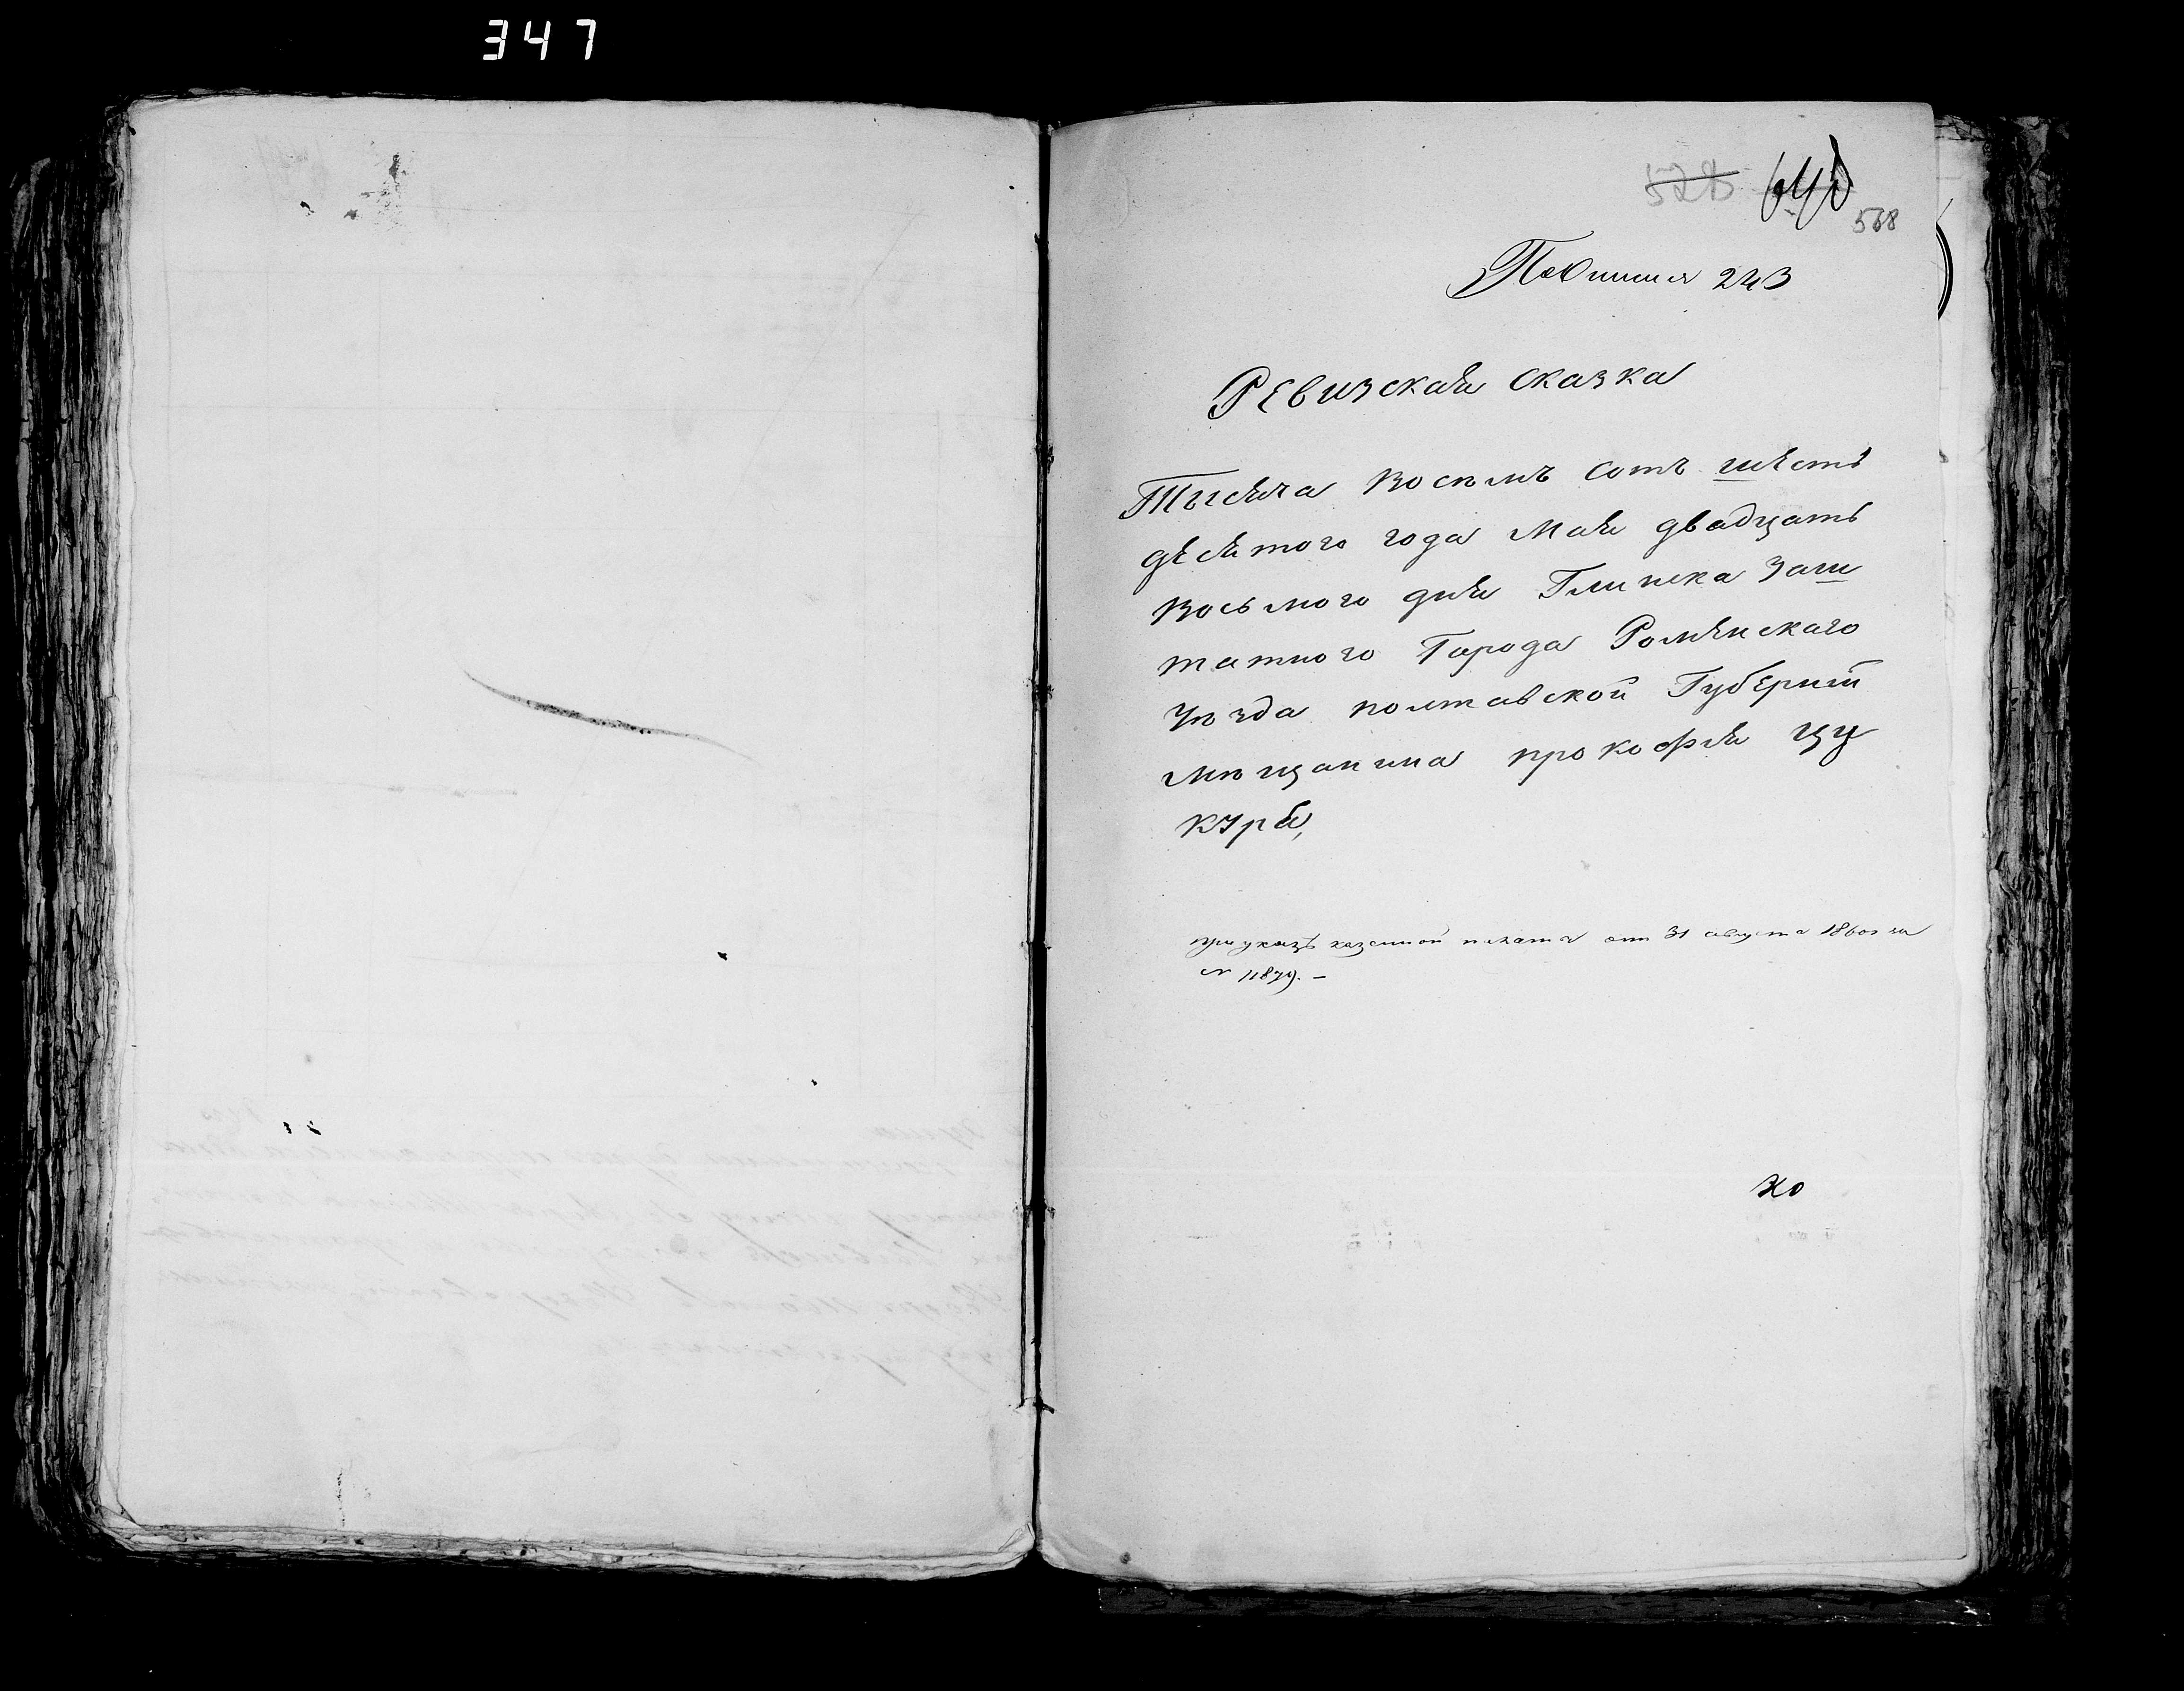 347
528
568
243
Ревизская сказка
Тысяча восемъ сотъ шесть
десятого года Мая двадцать
восьмого дня Глинска Заш
татного Города Роменскаго
Уѣзда полтавской Губернiи
мѣщанина прокофiя Цу
куры,
при указѣ казенной палаты отъ 31 августа 1860 г за
№ 11879. —